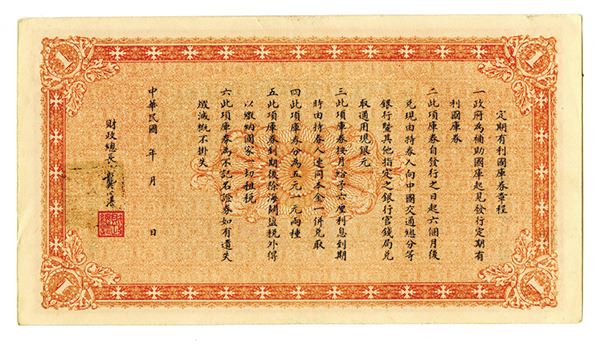 1
1
定期有利國庫券章程
一政府為補助國庫起見發行定期有
利國庫券
二此項庫券自發行之日起六個月後
兌現由持券人向中國交通總分等
銀行暨其他指定之銀行官錢局兌
取通用現銀元
三此項庫券按月給予六厘利息到期
時由持券人連同本金一併兌取
四此項庫券分為五元一元兩種
五此項庫券到期後除海關鹽稅外得
以繳納國家一切租稅
六此項庫券為不記名證券如有遺失
燬滅概不掛失
中華民國 年 月 日
財政總長 龔心湛
1
1